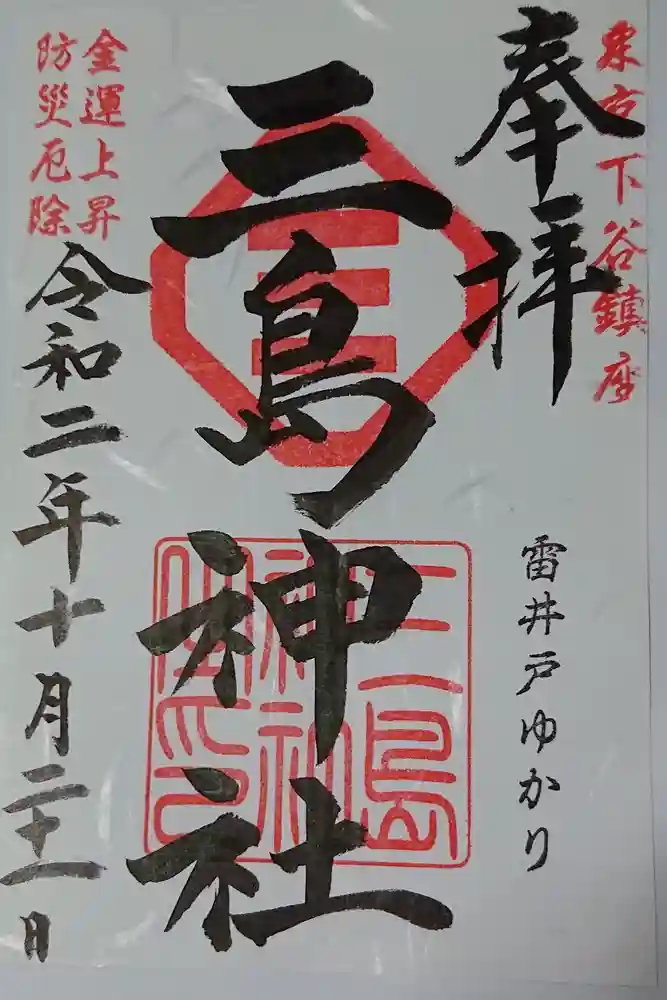 東京下谷鎮座
奉拝
雷井戸ゆかり
三島神社
三
三島
神社
金運上昇
防災厄除
令和二年十月二十一日